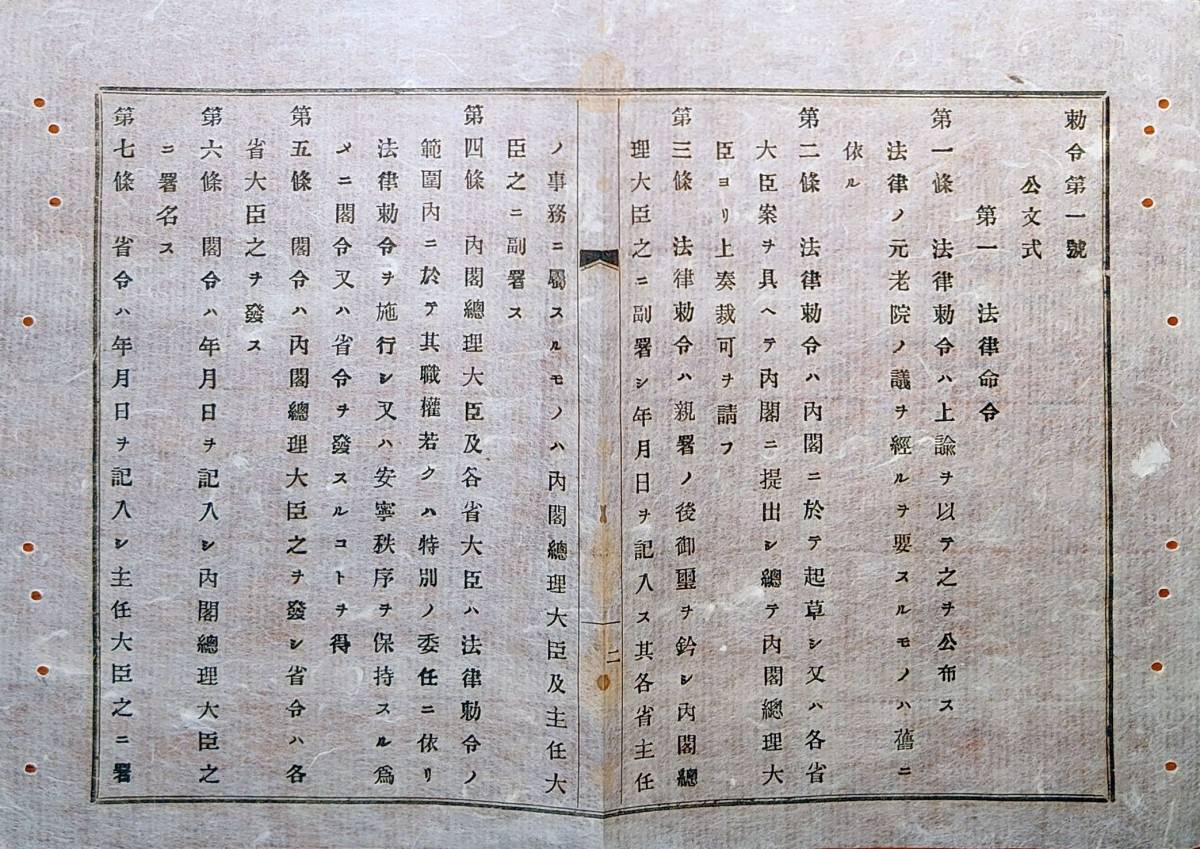 勅令第一號
公文式
第一　法律命令
第一條　法律勅令ハ上諭ヲ以テ之ヲ公布ス
法律ノ元老院ノ議ヲ經ルヲ要スルモノハ舊ニ
依ル
第二條　法律勅令ハ內閣ニ於テ起草シ又ハ各省
大臣案ヲ具ヘテ內閣ニ提出シ總テ內閣總理大
臣ヨリ上奏裁可ヲ請フ
第三條　法律勅令ハ親署ノ後御璽ヲ鈐シ內閣總
理大臣之ニ副署シ年月日ヲ記入ス其各省主任
二
ノ事務ニ屬スルモノハ內閣總理大臣及主任大
臣之ニ副署ス
第四條　內閣總理大臣及各省大臣ハ法律勅令ノ
範圍內ニ於テ其職權若クハ特別ノ委任ニ依リ
法律勅令ヲ施行シ又ハ安寧秩序ヲ保持スル爲
メニ閣令又ハ省令ヲ發スルコトヲ得
第五條　閣令ハ內閣總理大臣之ヲ發シ省令ハ各
省大臣之ヲ發ス
第六條　閣令ハ年月日ヲ記入シ內閣總理大臣之
ニ署名ス
第七條　省令ハ年月日ヲ記入シ主任大臣之ニ署